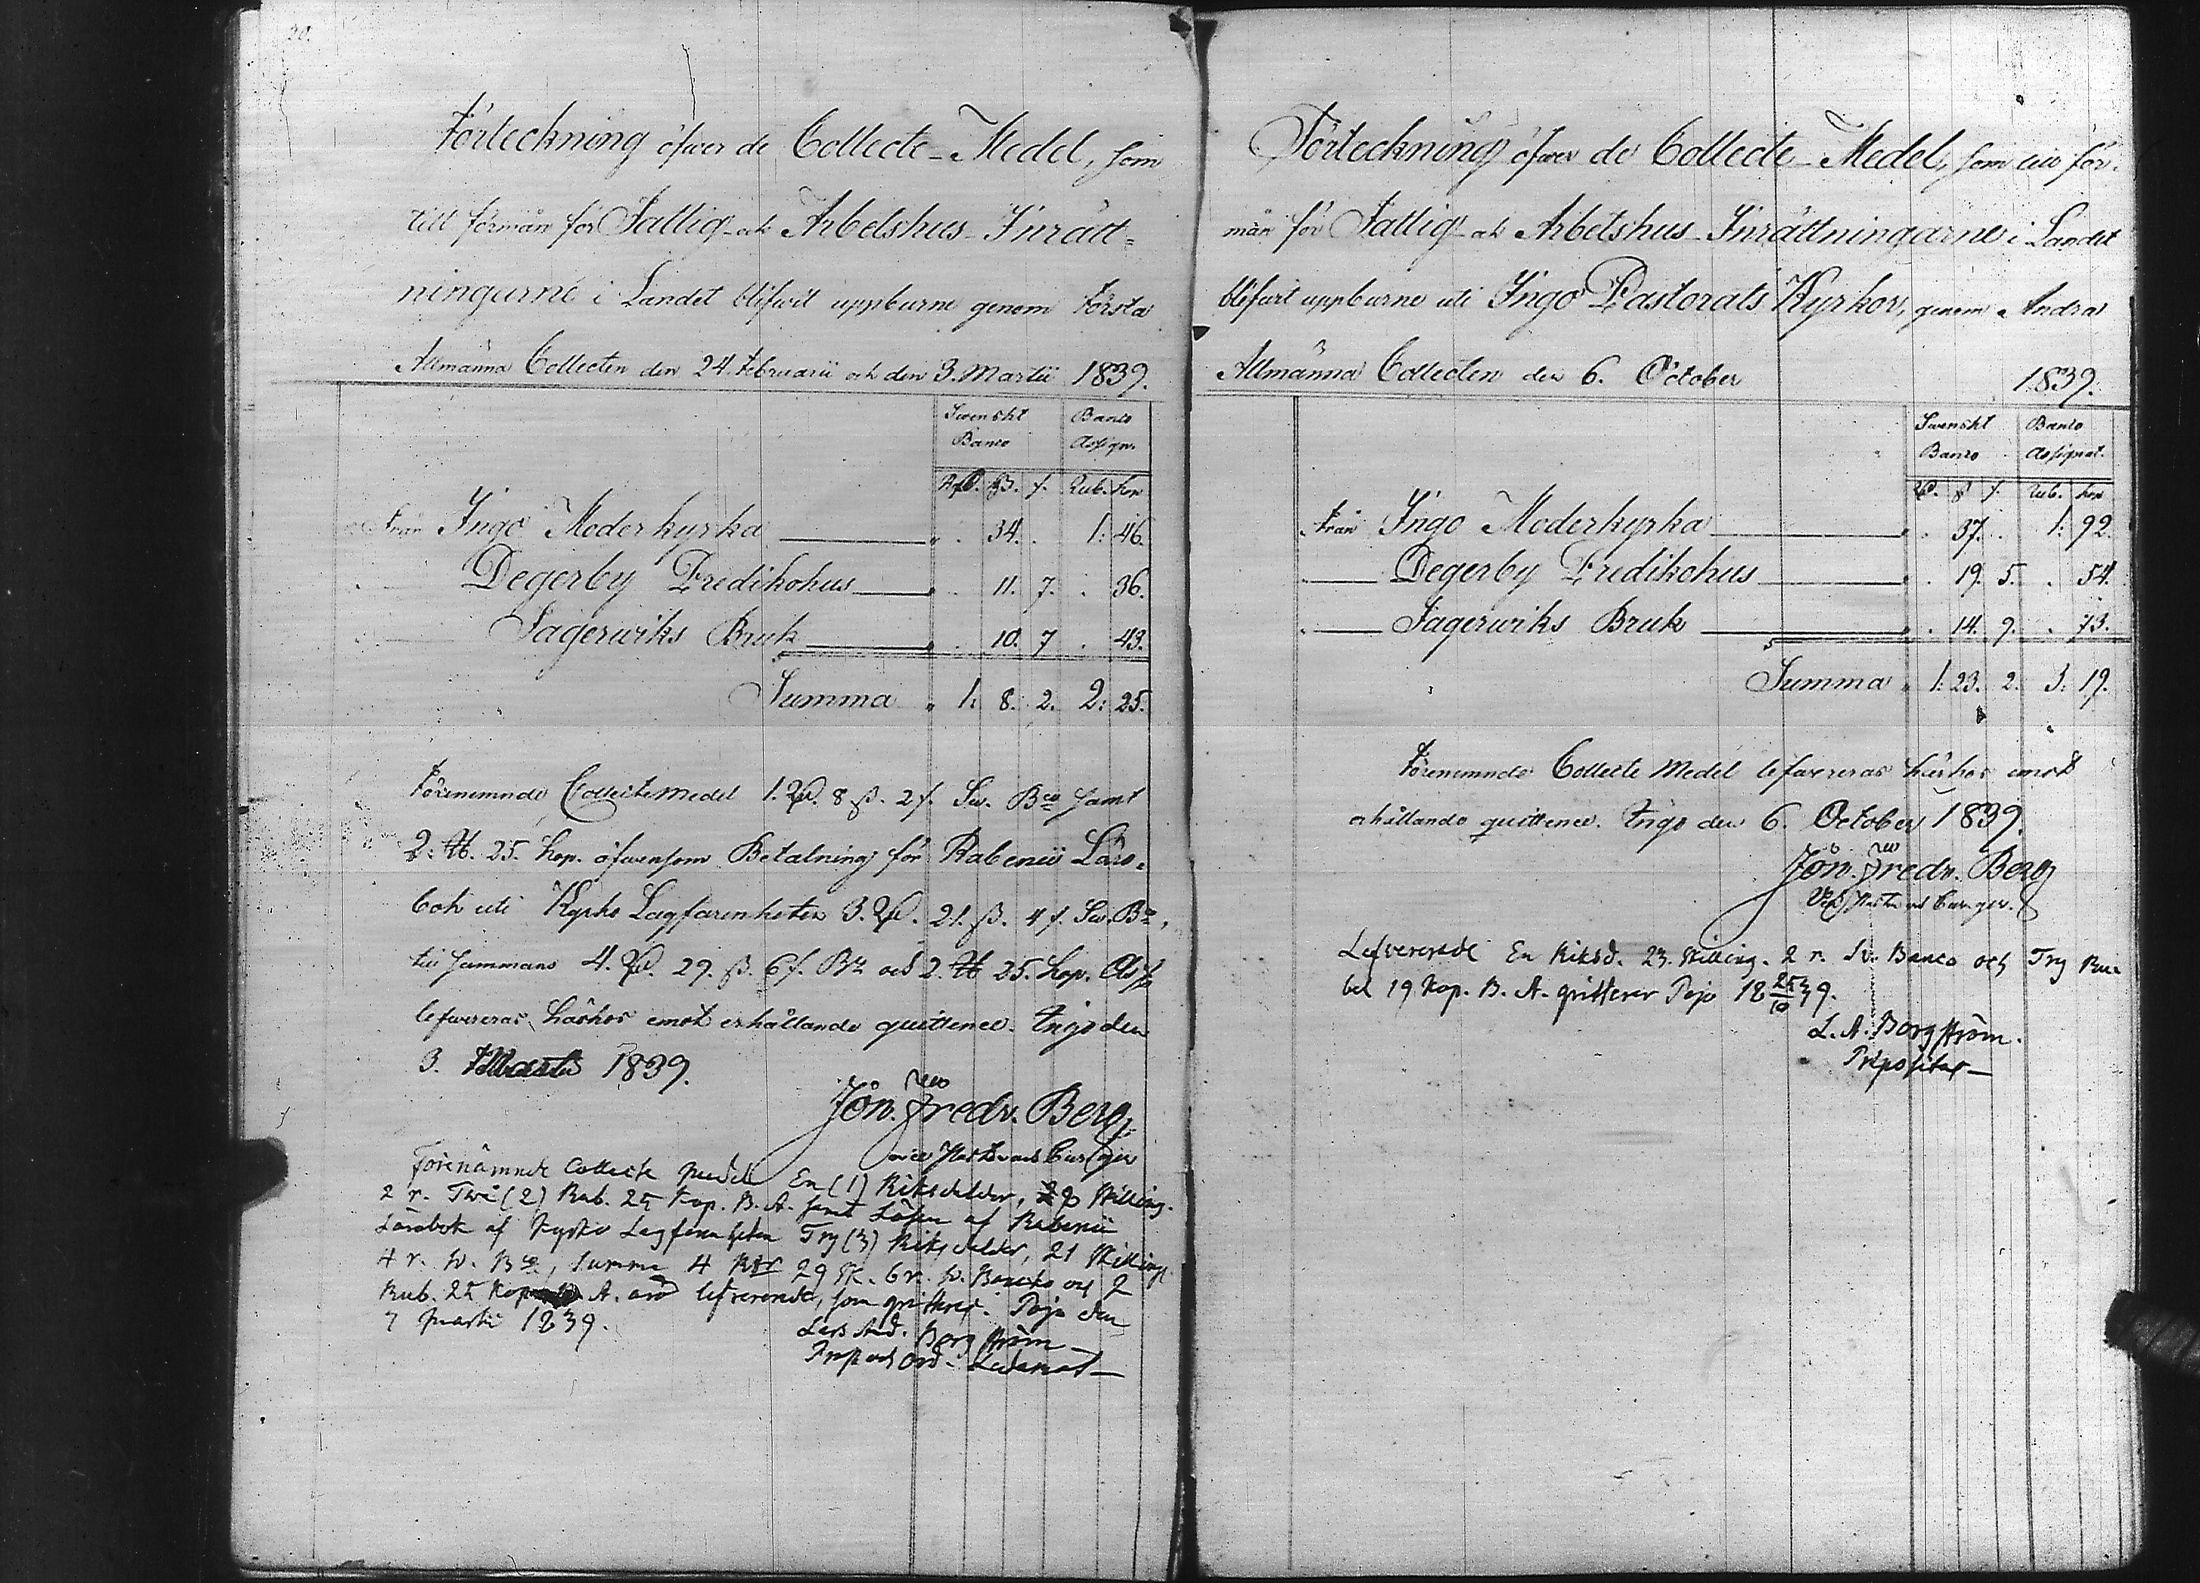 20.
Förteckning öfwer de Collecte-Medel, som
till förmån för Fattig- och Arbetshus-Inrätt=
ningarne i Landet blifwit uppburne genom Första
Allmänna Collecten den 24. Februarii och den 3. Martii 1839.
Swenskt Banco
Banco Assign.
Rd. ß. r. Rub. kop
Från Ingo Moderkyrka " . 34. . 1: 46.
Degerby Predikohus " . 11. 7. . 36.
Fagerwiks Bruk " . 10. 7 . 43.
Summa " 1: 8. 2. 2: 25.
Förenemnde Collectemedel 1. Rd. 8 ß. 2 r. Sw. Bco samt
2. Rb. 25. kop. öfwensom Betalning för Rabenii Läro=
bok uti Kyrko Lagfarenheten 3. Rd. 21. ß. 4 r. Sw. Bco,
tillsammans 4. Rd. 29. ß. 6 r. Bco och 2 Rb 25. kop. Ass
lefwereras härhos emot erhållande quittence. Ingo den
3. Martii 1839.
Jon. Fredr. Berg
vice Pastor and Curam ger
Förenämnde Collecte medel En (1) Riksdaler, 8 Skilling.
2 r. Två (2) Rub. 25 Kop. B. A. samt Lösen af Rabenii
Lärobok af Kyrko Lagfarenheten Try (3) Riksdaler, 21 Skilling
4 r. Sv. Bco, Summa 4 Rdr 29 sk. 6 r. Sv. Banco och 2
Rub. 25 Kop A. äro lefvererade, som qvitteras. Pojo den
7 Martii 1839.
Lars And. Borgström
Prep och Ord. Ledamot
Förteckning öfwer de Collecte-Medel, som till för-
mån för Fattig- och Arbetshus-Inrättningarne i Landet
blifwit uppburne uti Ingo Pastorats Kyrkor, genom Andra
Allmänna Collecten den 6. October 1839.
Swenskt Banco
Banco Assignat.
Rd. ß r. Rub. kop
Från Ingo Moderkyrka " . 37. . 1: 92.
Degerby Predikohus " . 19. 5. . 54.
Fagerwiks Bruk " . 14. 9. . 73.
Summa " 1: 23. 2. 3: 19.
Förenemnde Collecte Medel lefwereras härhos emot
erhållande quittence. Ingo den 6. October 1839.
Jon. Fredr. Berg
Vice Pastor and Cur. ger.
Lefvererade En Riksd. 23. Skilling. 2 r. Sv. Banco och Try Ru-
bel 19 Kop. B. A. qvitterar Pojo 18 25/10 39.
L. A. Borgström.
Præpositus